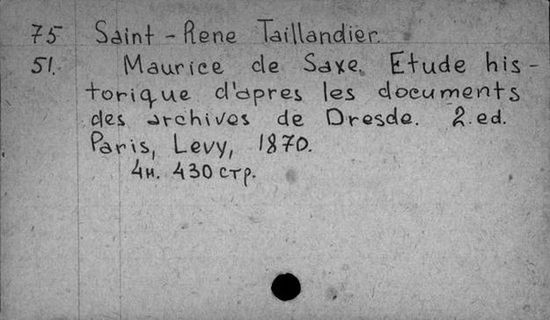 75 Saint-Rene Taillandier.
51. Maurice de Saxe. Etude his-
torique d'apres les documents
des archives de Dresde. 2.ed.
Paris, Levy, 1870.
4н. 430 стр.